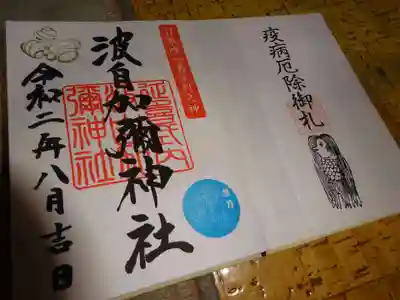 疫病厄除御札
波自加彌神社
延喜式内
彌神社
令和二年八月吉日